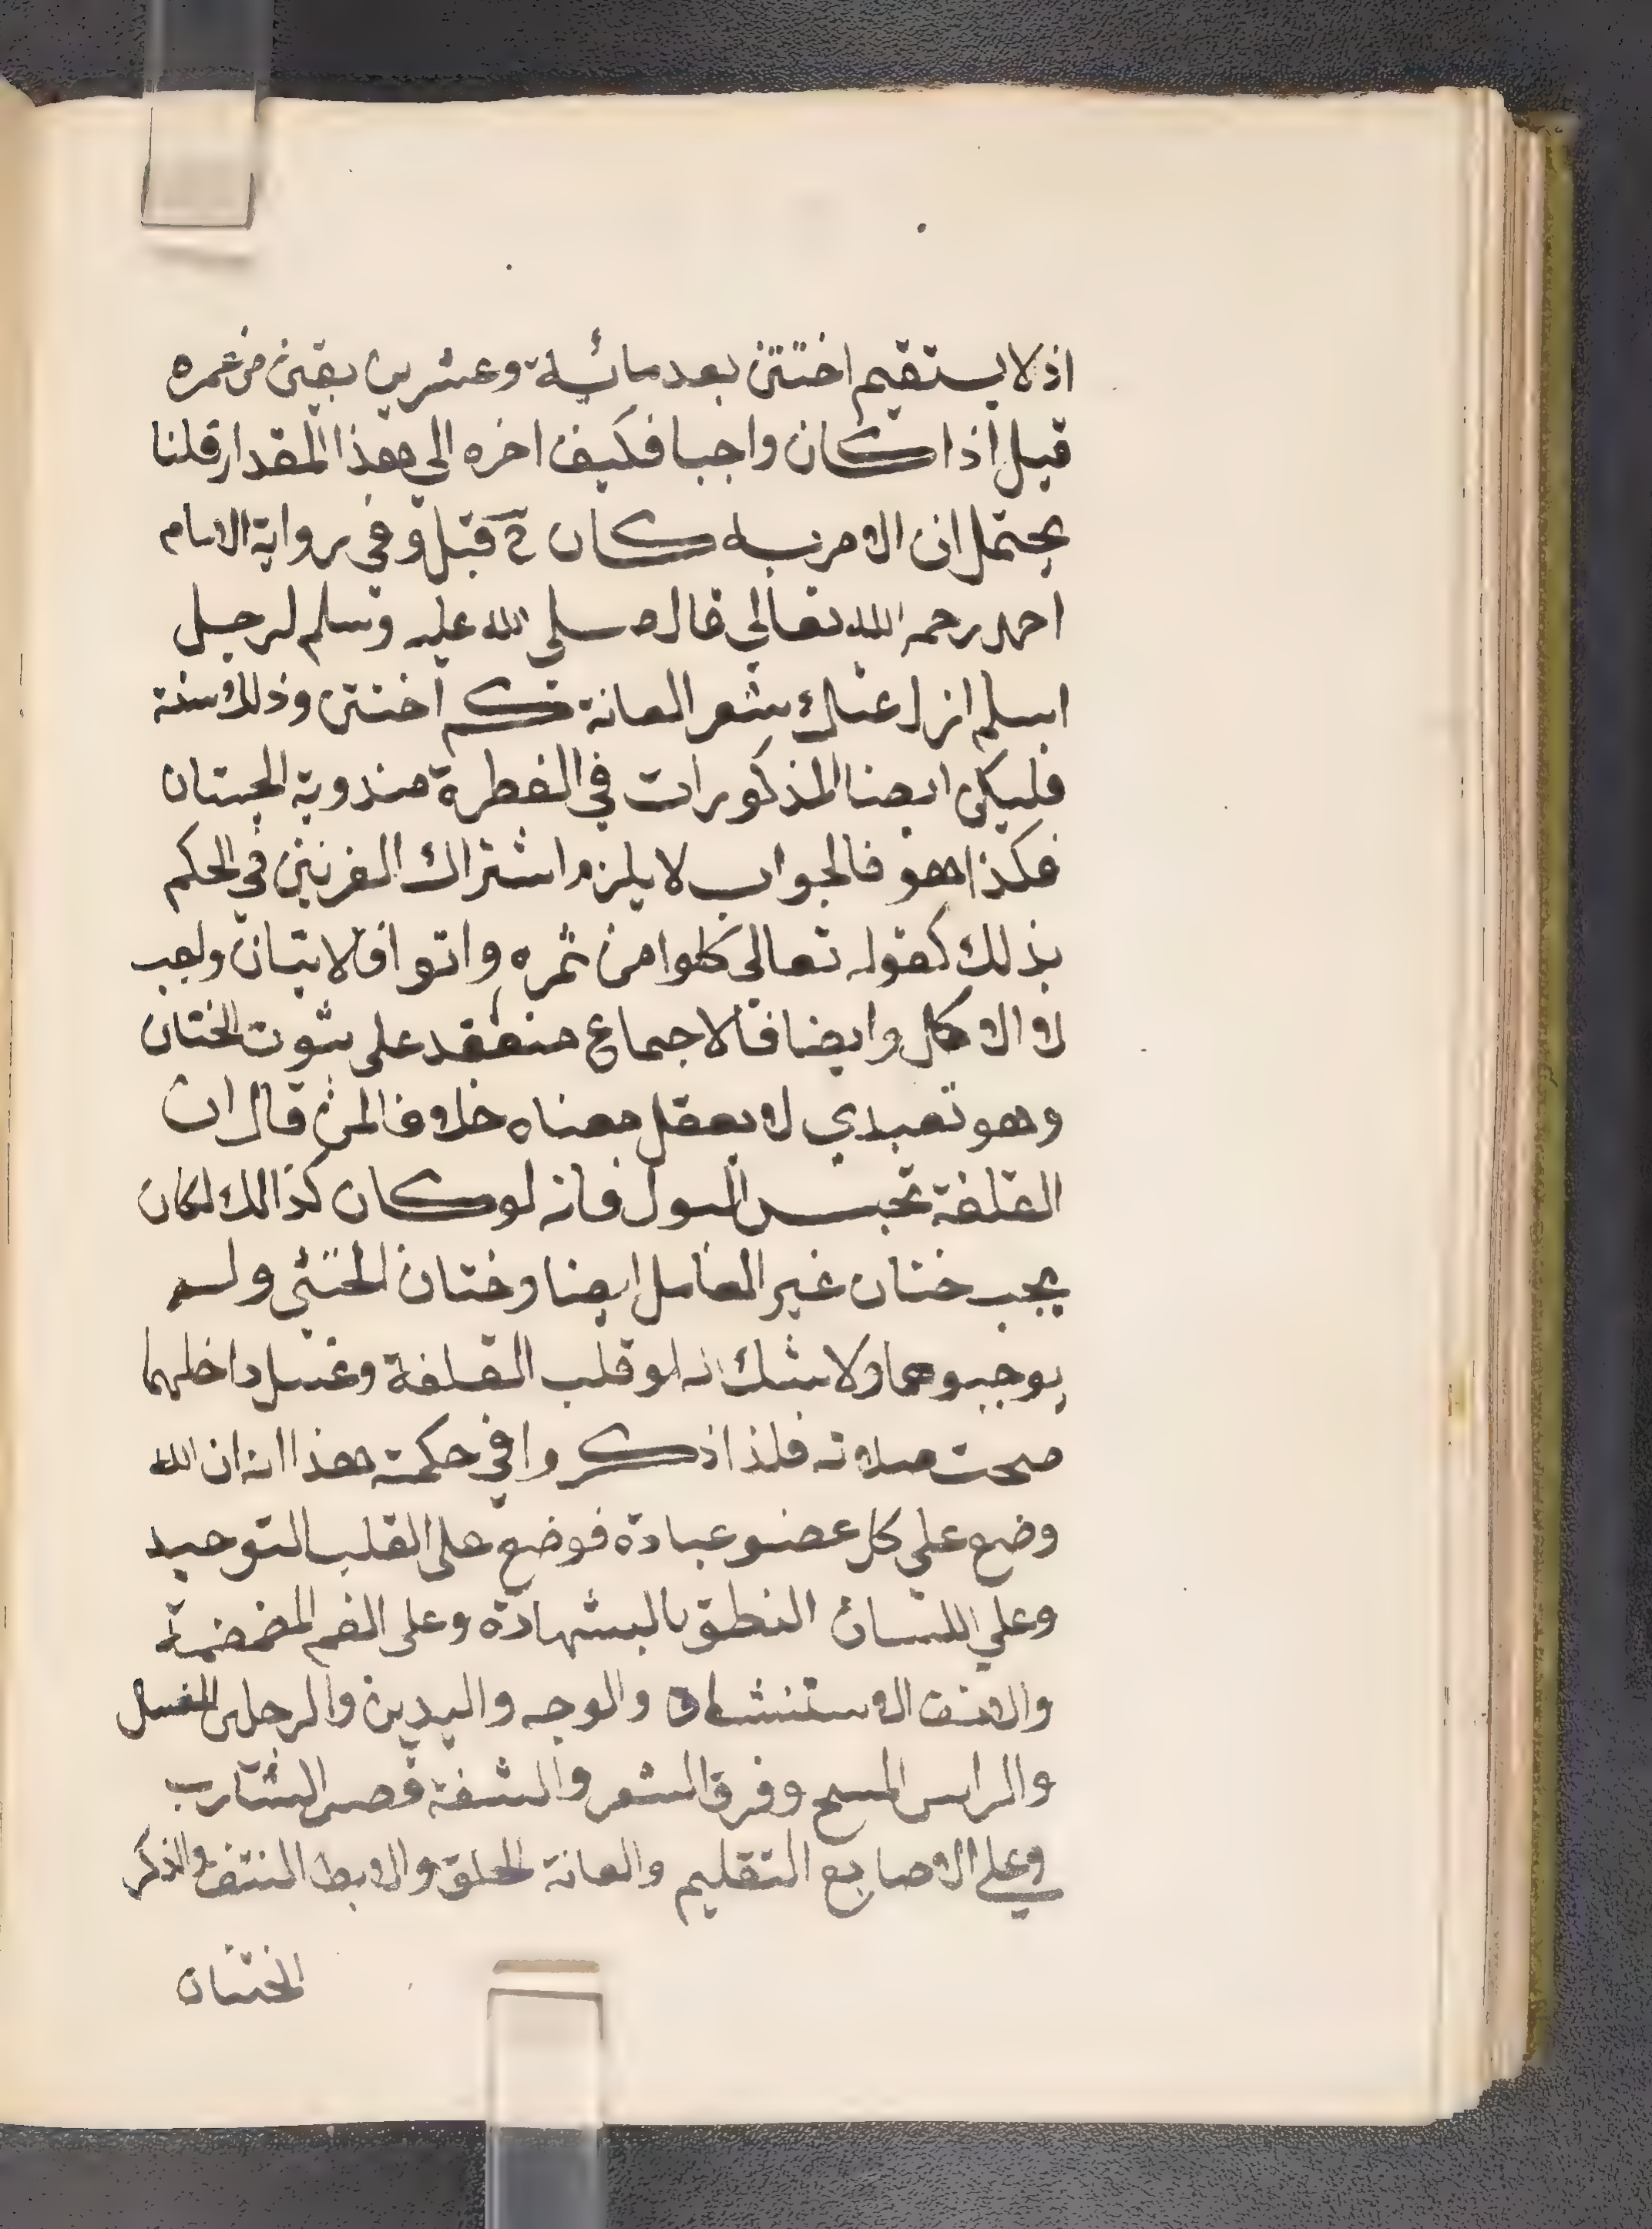 اذ لا يستقيم اختتن بعد مائية وعشرين بقين من عمره
قيل اذا كان واجبا فكيف اخره الي هذا المقدار قلنا
يحتمل ان الامر به كان ح قبل وفي رواية الامام
احمد رحمه الله تعالي قال صلي الله عليه وسلم لرجل
اسلم ازل عنك شعر العانة ثم اختتن وذلك سنة
فليكن ايضا المذكورات في الفطرة مندوبة الختان
فكذا هو فالجواب لا يلزم اشتراك القرينين في الحكم
بذلك كقوله تعالي كلوا من ثمره واتوا فالايتان واجب
لا الاكل وايضا فالاجماع منعقد علي ثبوت الختان
وهو تعبدي لا يعقل معناه خلافا لمن قال ان
القلفة تحبس البول فانه لو كان كذالك لكان
يجب ختان غير العاسل ايضا وختان الخنثي ولم
يوجبوهما ولا شك انه لو قلب القلفة وغسل داخلهما
صحت صلاته فلذا ذكروا في حكمة هذا انه ان الله
وضع علي كل عضو عبادة فوضع علي القلب التوحيد
وعلي اللسان النطق بالشهادة وعلي الفم المضمضة
والانف الاستنشاق والوجه واليدين والرجلين الغسل
والراس المسح وفرق الشعر والشفة قص الشارب
وعلي الاصابع التقليم والعانة الحلق والابط النتف والذكر
الختان